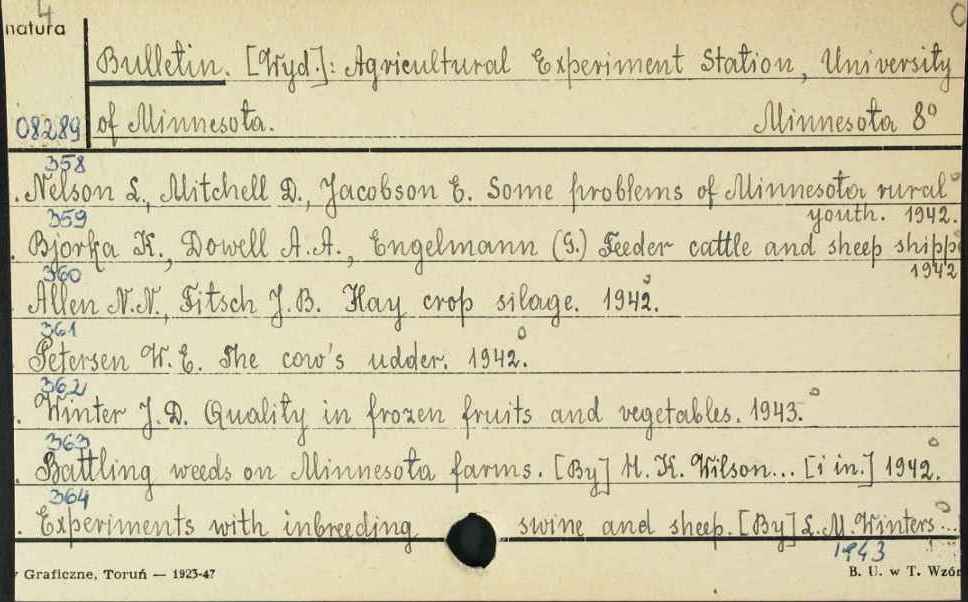 4
natura
Bulletin. [Wyd.]: Agricultural Experiment Station, University
08289 of Minnesota. Minnesota 8°
358
. Nelson L., Mitchell D., Jacobson E. Some problems of Minnesota rural
youth. 1942.
359
. Bjorka K., Dowell A.A., Engelmann (G.) Feeder cattle and sheep shipp
1942
360
Allen N.N., Fitsch J.B. Hay crop silage. 1942.
361
Petersen W.E. The cow's udder. 1942.
362
. Winter J.D. Quality in frozen fruits and vegetables. 1943.
363
. Battling weeds on Minnesota farms. [By] H.K. Wilson... [i in.] 1942.
364
. Experiments with inbreeding swine and sheep. [By] L.M. Winters...
1943
Graficzne, Toruń — 1923-47 B. U. w T. Wzór